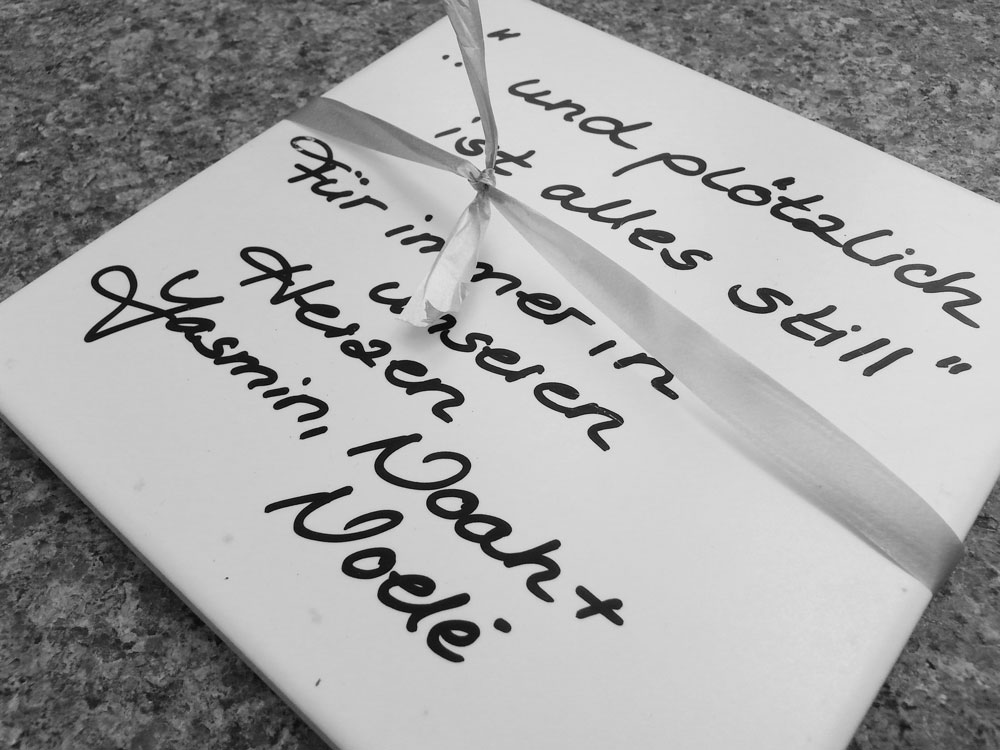 " und plötzlich
ist alles still "
Für immer in
unseren
Herzen
Yasmin, Noah +
Noelé